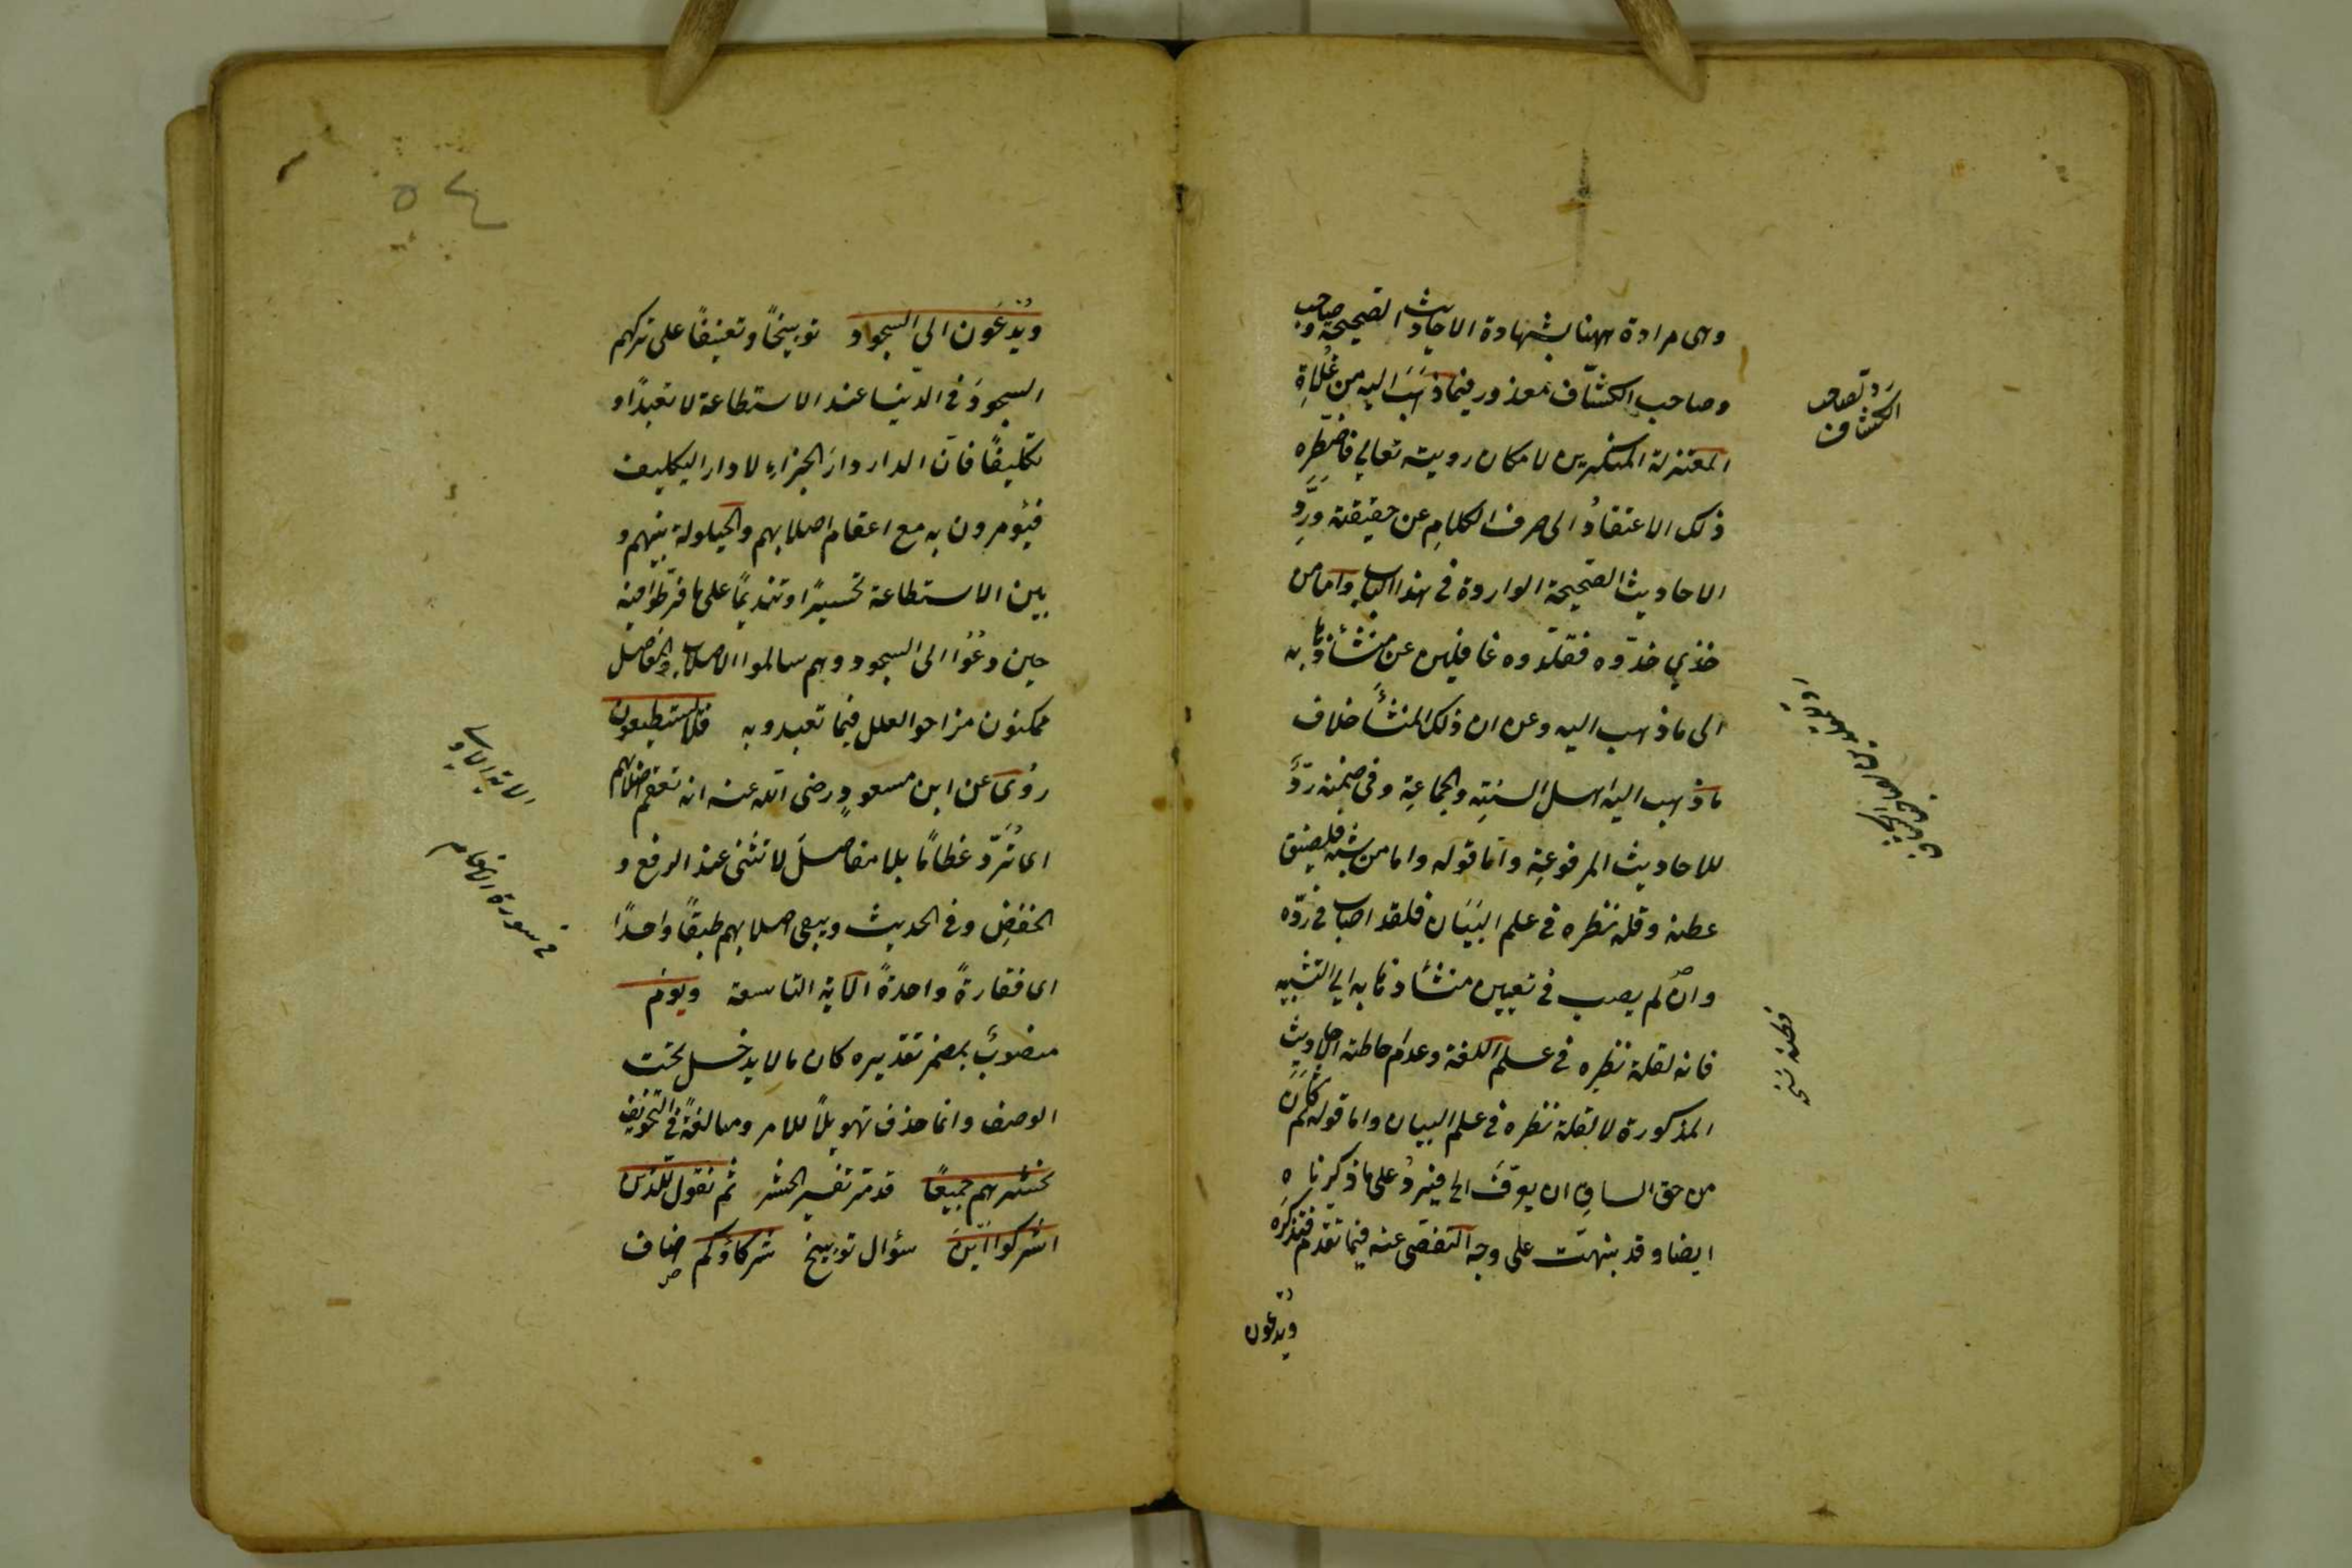 وهى مرادة ههنا بشهادة الاحاديث الصحيحة
وصاحب الكشّاف معذور فيما ذَهَبَ اليه من غُلاةِ
المعتزلة المنكرين لامكان رويته تعالي فاضطره
ذلك الاعتقادُ الى صرف الكلامِ عن حقيقته وَردِّ
الاحاديث الصّحيحة الواردة فى هذا الباب واما من
حَذي حَذْوه فقلّدوه غافلين عن مَنْشَأ ذهابه
الى ما ذهب اليه وعن ان ذلك المنشأَ خلاف
ما ذهب اليه اهل السنّةِ والجماعةِ وفى ضمنه ردَّ
للاحاديث المرفوعةِ وامّا قوله واما من شبه فلضيق
عطنه وقلة نظره فى علم البَيَان فلقد اصاب فى ردّه
وان لم يصب فى تعيين منشأ ذهابه الي التشبيه
فانه لقلة نظره فى علم اللغة وعدم احاطته الاحاديث
المذكورة لا لقلة نظره فى علم البيان واما قوله ثم كان
من حق الساق ان يعرّف الخ فيَردُ على ما ذكرناه
ايضا وقد نبهتّ على وجه التفصّى عنه فيما تقدم فتذكره
ويُدعون
ردّ لصاحب
الكشاف
ويُدْعَون الى السجود توبيخًا وتعنيفًا على تركهم
السجودَ فى الدّنيا عند الاستطاعة لا تعبدًا و
تكليفًا فانّ الدار دارَ الجزاءِ لا دار التكليف
فيُؤمرون به مع اعقام اصلابهم والحيلولة بينهم و
بين الاستطاعة تحسيرًا وتنديمًا على ما فرّطوا فيه
حين دُعُوا الى السجود وهم سالموا الاصلاب والمفاصل
ممكنون مزاحوا العلل فيما تعبدوا به فلا يستطيعون
رُوى عن ابن مسعودٍ رضى الله عنه انه تعقم اصلابهم
اى تُردّ عظامًا بلا مفاصلَ لا تنثنى عند الرفع و
الخفضِ وفى الحديث ويبقى اصلابهم طبقًا واحدًا
اى فقارةً واحدةً الآية التاسعة ويومَ
منصوبٌ بمضمر تقديره كان ما لا يدخل تحت
الوصف وانما حذف تهويلًا للامر ومبالغةً فى التخويف
نحشرهم جميعًا قد مرّ تفسير الحشر ثم نقول للذين
اشركوا اَينَ سؤال توبيخ شركاؤكم اضاف
فى سورة الانعام